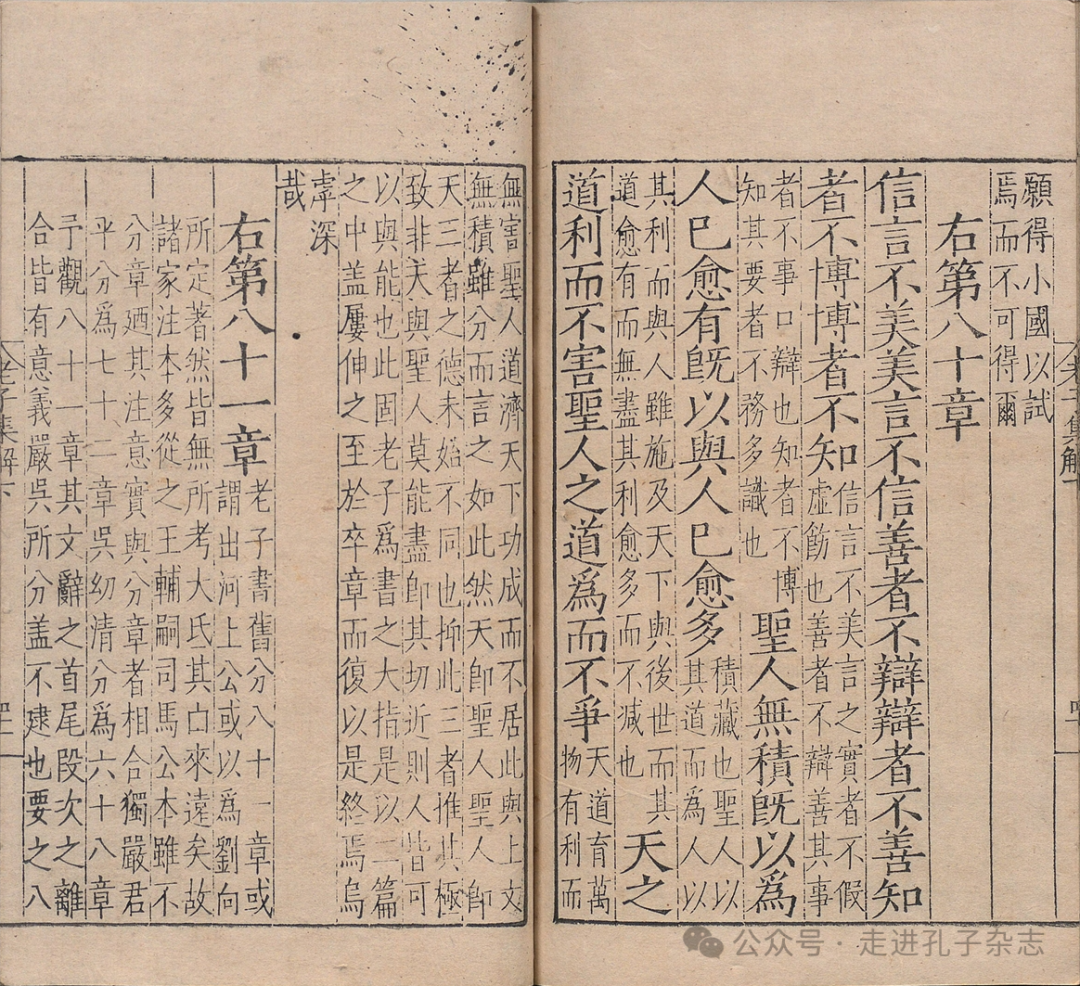 願得小國以試
焉而不可得爾
右第八十章
信言不美美言不信善者不辯辯者不善知
者不博博者不知
信言不美言之實者不假
虛飾也善者不辯善其事
者不事口辯也知者不博
知其要者不務多識也
聖人無積旣以爲
人已愈有旣以與人已愈多
積藏也聖人以
其道而爲人以
其利而與人雖施及天下與後世而其
道愈有而無盡其利愈多而不减也
天之
道利而不害聖人之道爲而不爭
天道育萬
物有利而
無害聖人道濟天下功成而不居此與上文
無積雖分而言之如此然天卽聖人聖人卽
天三者之德未始不同也抑此三者推其極
致非天與聖人莫能盡卽其切近則人皆可
以與能也此固老子爲書之大指是以二篇
之中盖屢伸之至於卒章而復以是終焉烏
虖深
哉
右第八十一章
老子書舊分八十一章或
謂出河上公或以爲劉向
所定著然皆無所考大氐其由來遠矣故
諸家注本多從之王輔嗣司馬公本雖不
分章廼其注意實與分章者相合獨嚴君
平分爲七十二章吳幼清分爲六十八章
予觀八十一章其文辭之首尾段次之離
合皆有意義嚴吳所分盖不逮也要之八
老子集解下
公众号·走进孔子杂志